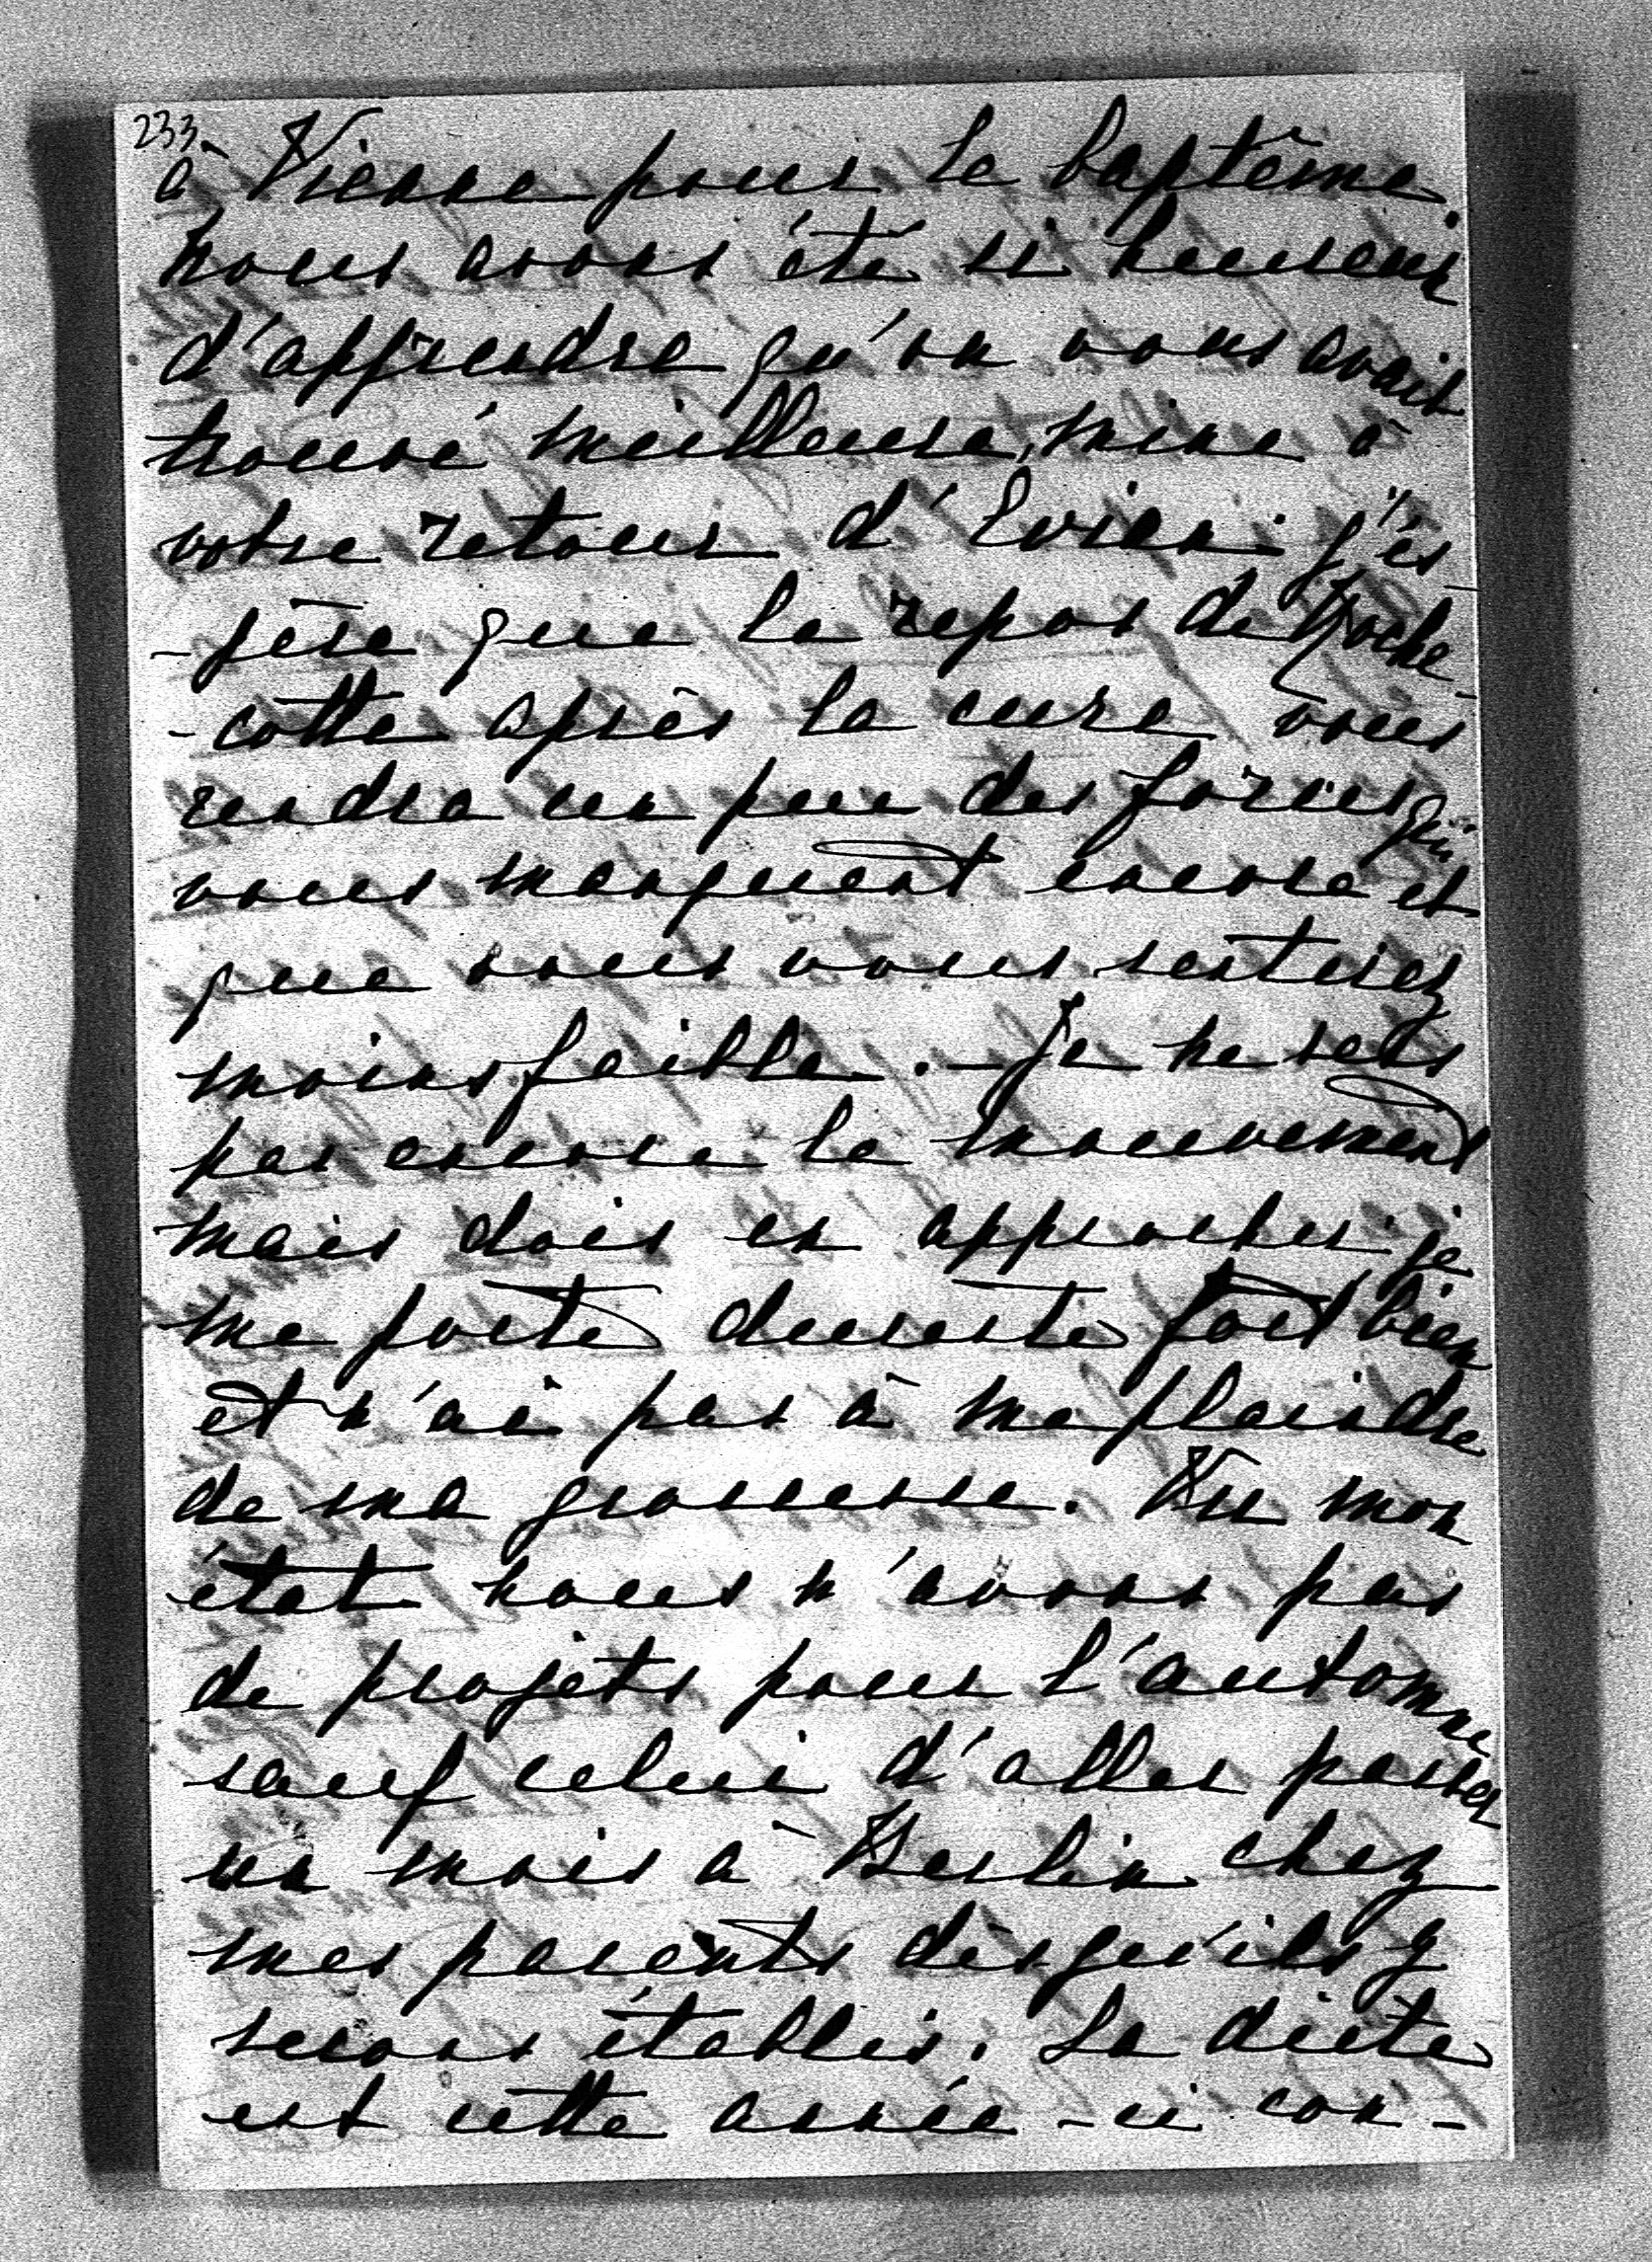 233
à Vienne pour le baptême.
nous avons été si heureux
d'apprendre qu'on vous avait
trouvé meilleure mine à
votre retour d'Evian. j'es-
-père que le repos de Roche-
-cotte après la cure vous
rendra un peu des forces qui
vous manquent encore et
que vous vous sentirez
moins faible. - Je ne sens
pas encore le mouvement
mais dois en approcher. je
me porte dureste fort bien
et n'ai pas à me plaindre
de ma grossesse. Vu mon
état nous n'avons pas
de projets pour l'automne
sauf celui d'aller passer
un mois à Berlin chez
mes parents dèsqu'ils y
seront établis. La diète
est cette année-ci con-